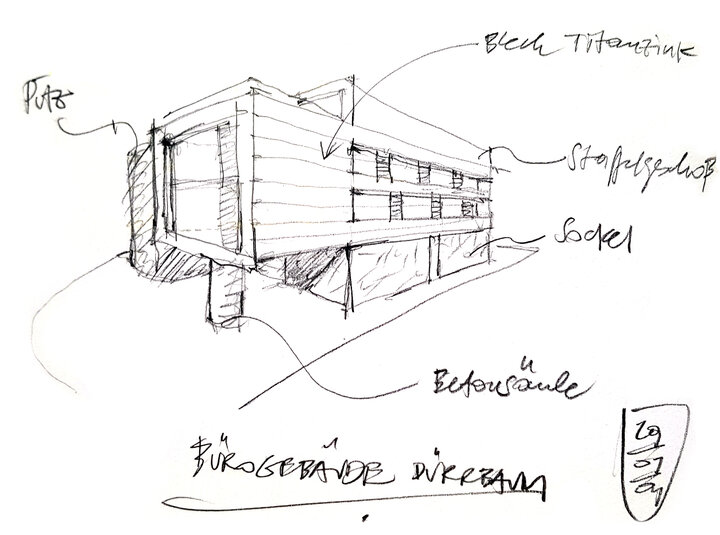 Blech Titanzink
Putz
Staffelgeschoß
Sockel
Betonsäule
BÜROGEBÄUDE DÜRRBAUM
29
07
04